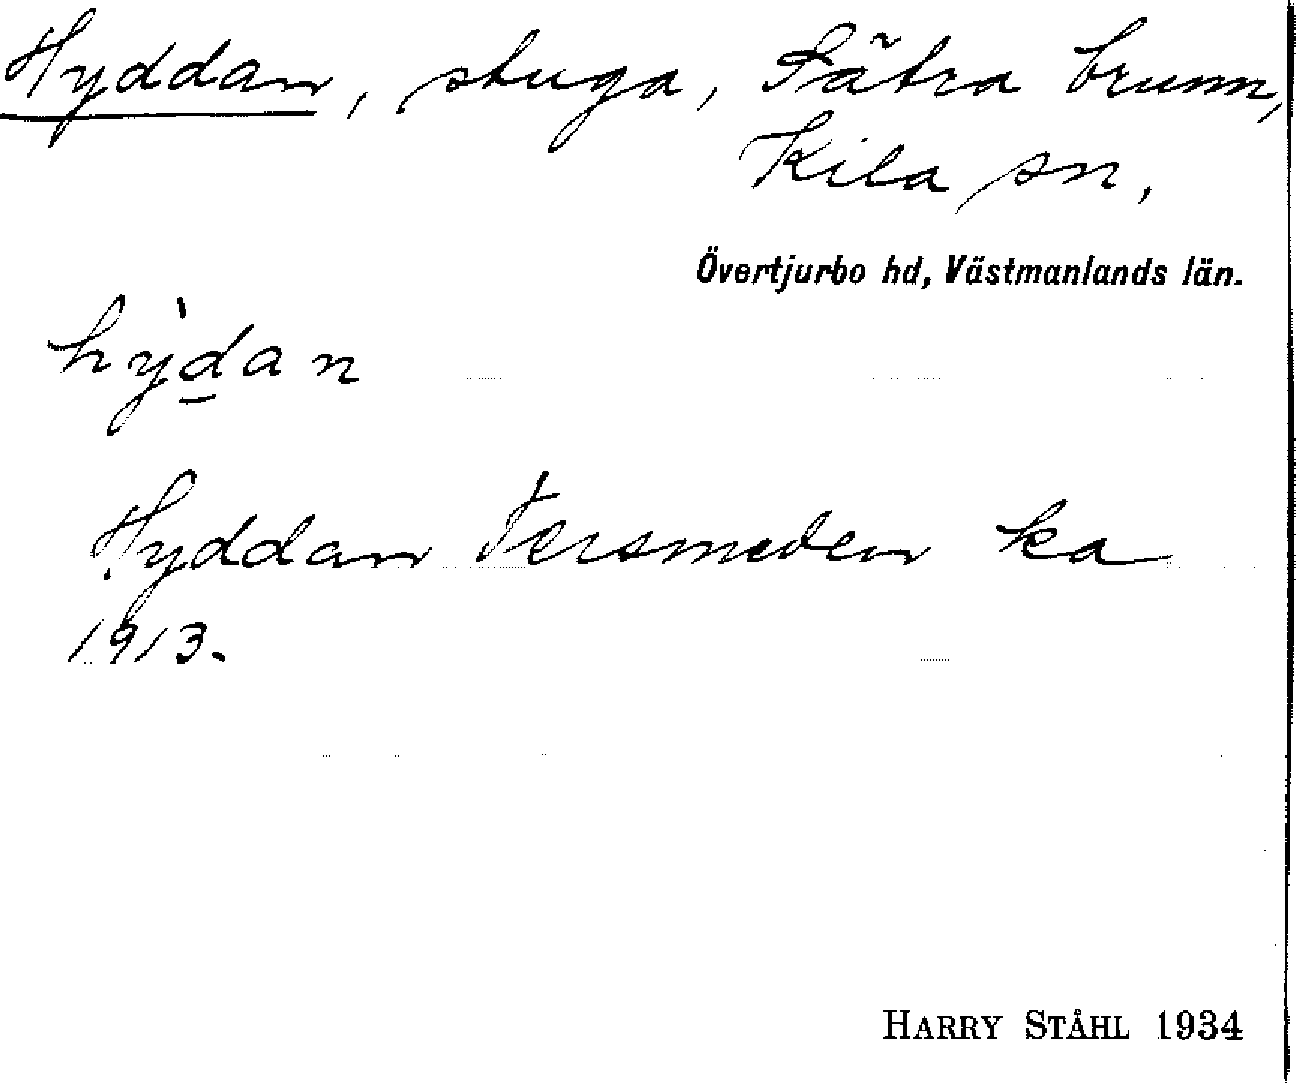 Hyddan, stuga, Sätra brunn,
Kila sn,
Övertjurbo hd, Västmanlands län.
hỳd̲an
Hyddan Tersmeden ka
1913.
HARRY STÅHL 1934